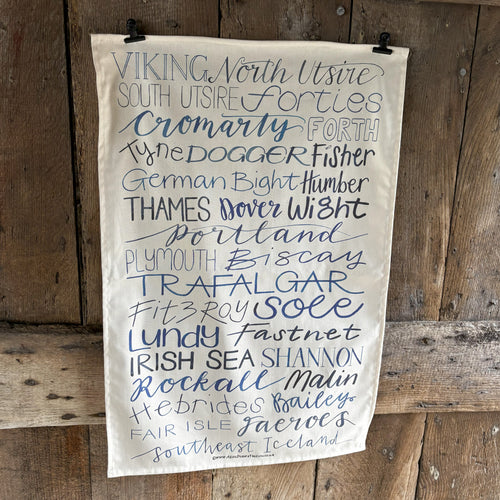 VIKING North Utsire
SOUTH UTSIRE forties
Cromarty FORTH
Tyne DOGGER Fisher
German Bight Humber
THAMES Dover Wight
Portland
PLYMOUTH Biscay
TRAFALGAR
FitzRoy Sole
Lundy Fastnet
IRISH SEA SHANNON
Rockall Malin
Hebrides Bailey
FAIR ISLE faeroes
southeast Iceland